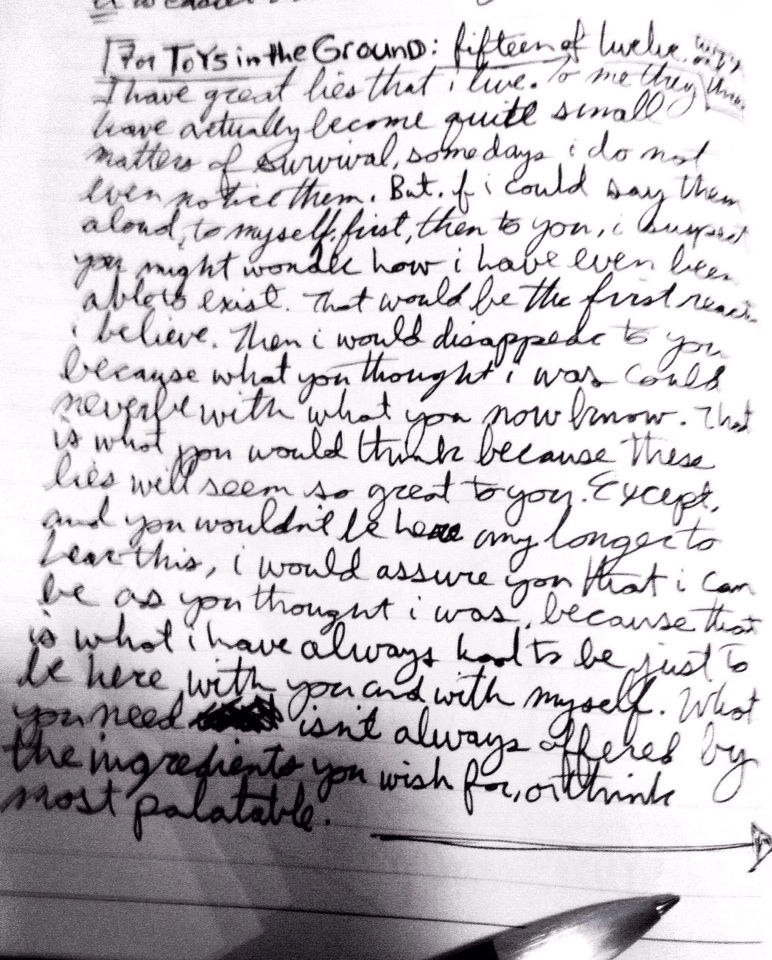 For Toys in the Ground: fifteen of twelve.
I have great lies that i live. To me they
have actually become quite small
matters of survival, some days i do not
even notice them. But. if i could say them
aloud, to myself first, then to you, i suspect
you might wonder how i have even been
able to exist. That would be the first react
i believe. Then i would disappear to you
because what you thought i was could
never be with what you now know. That
is what you would think because these
lies will seem so great to you. Except,
and you wouldn't be here any longer to
hear this, i would assure you that i can
be as you thought i was, because that
is what i have always had to be just to
be here with you and with myself. What
you need isn't always offered by
the ingredients you wish for, or think
most palatable.